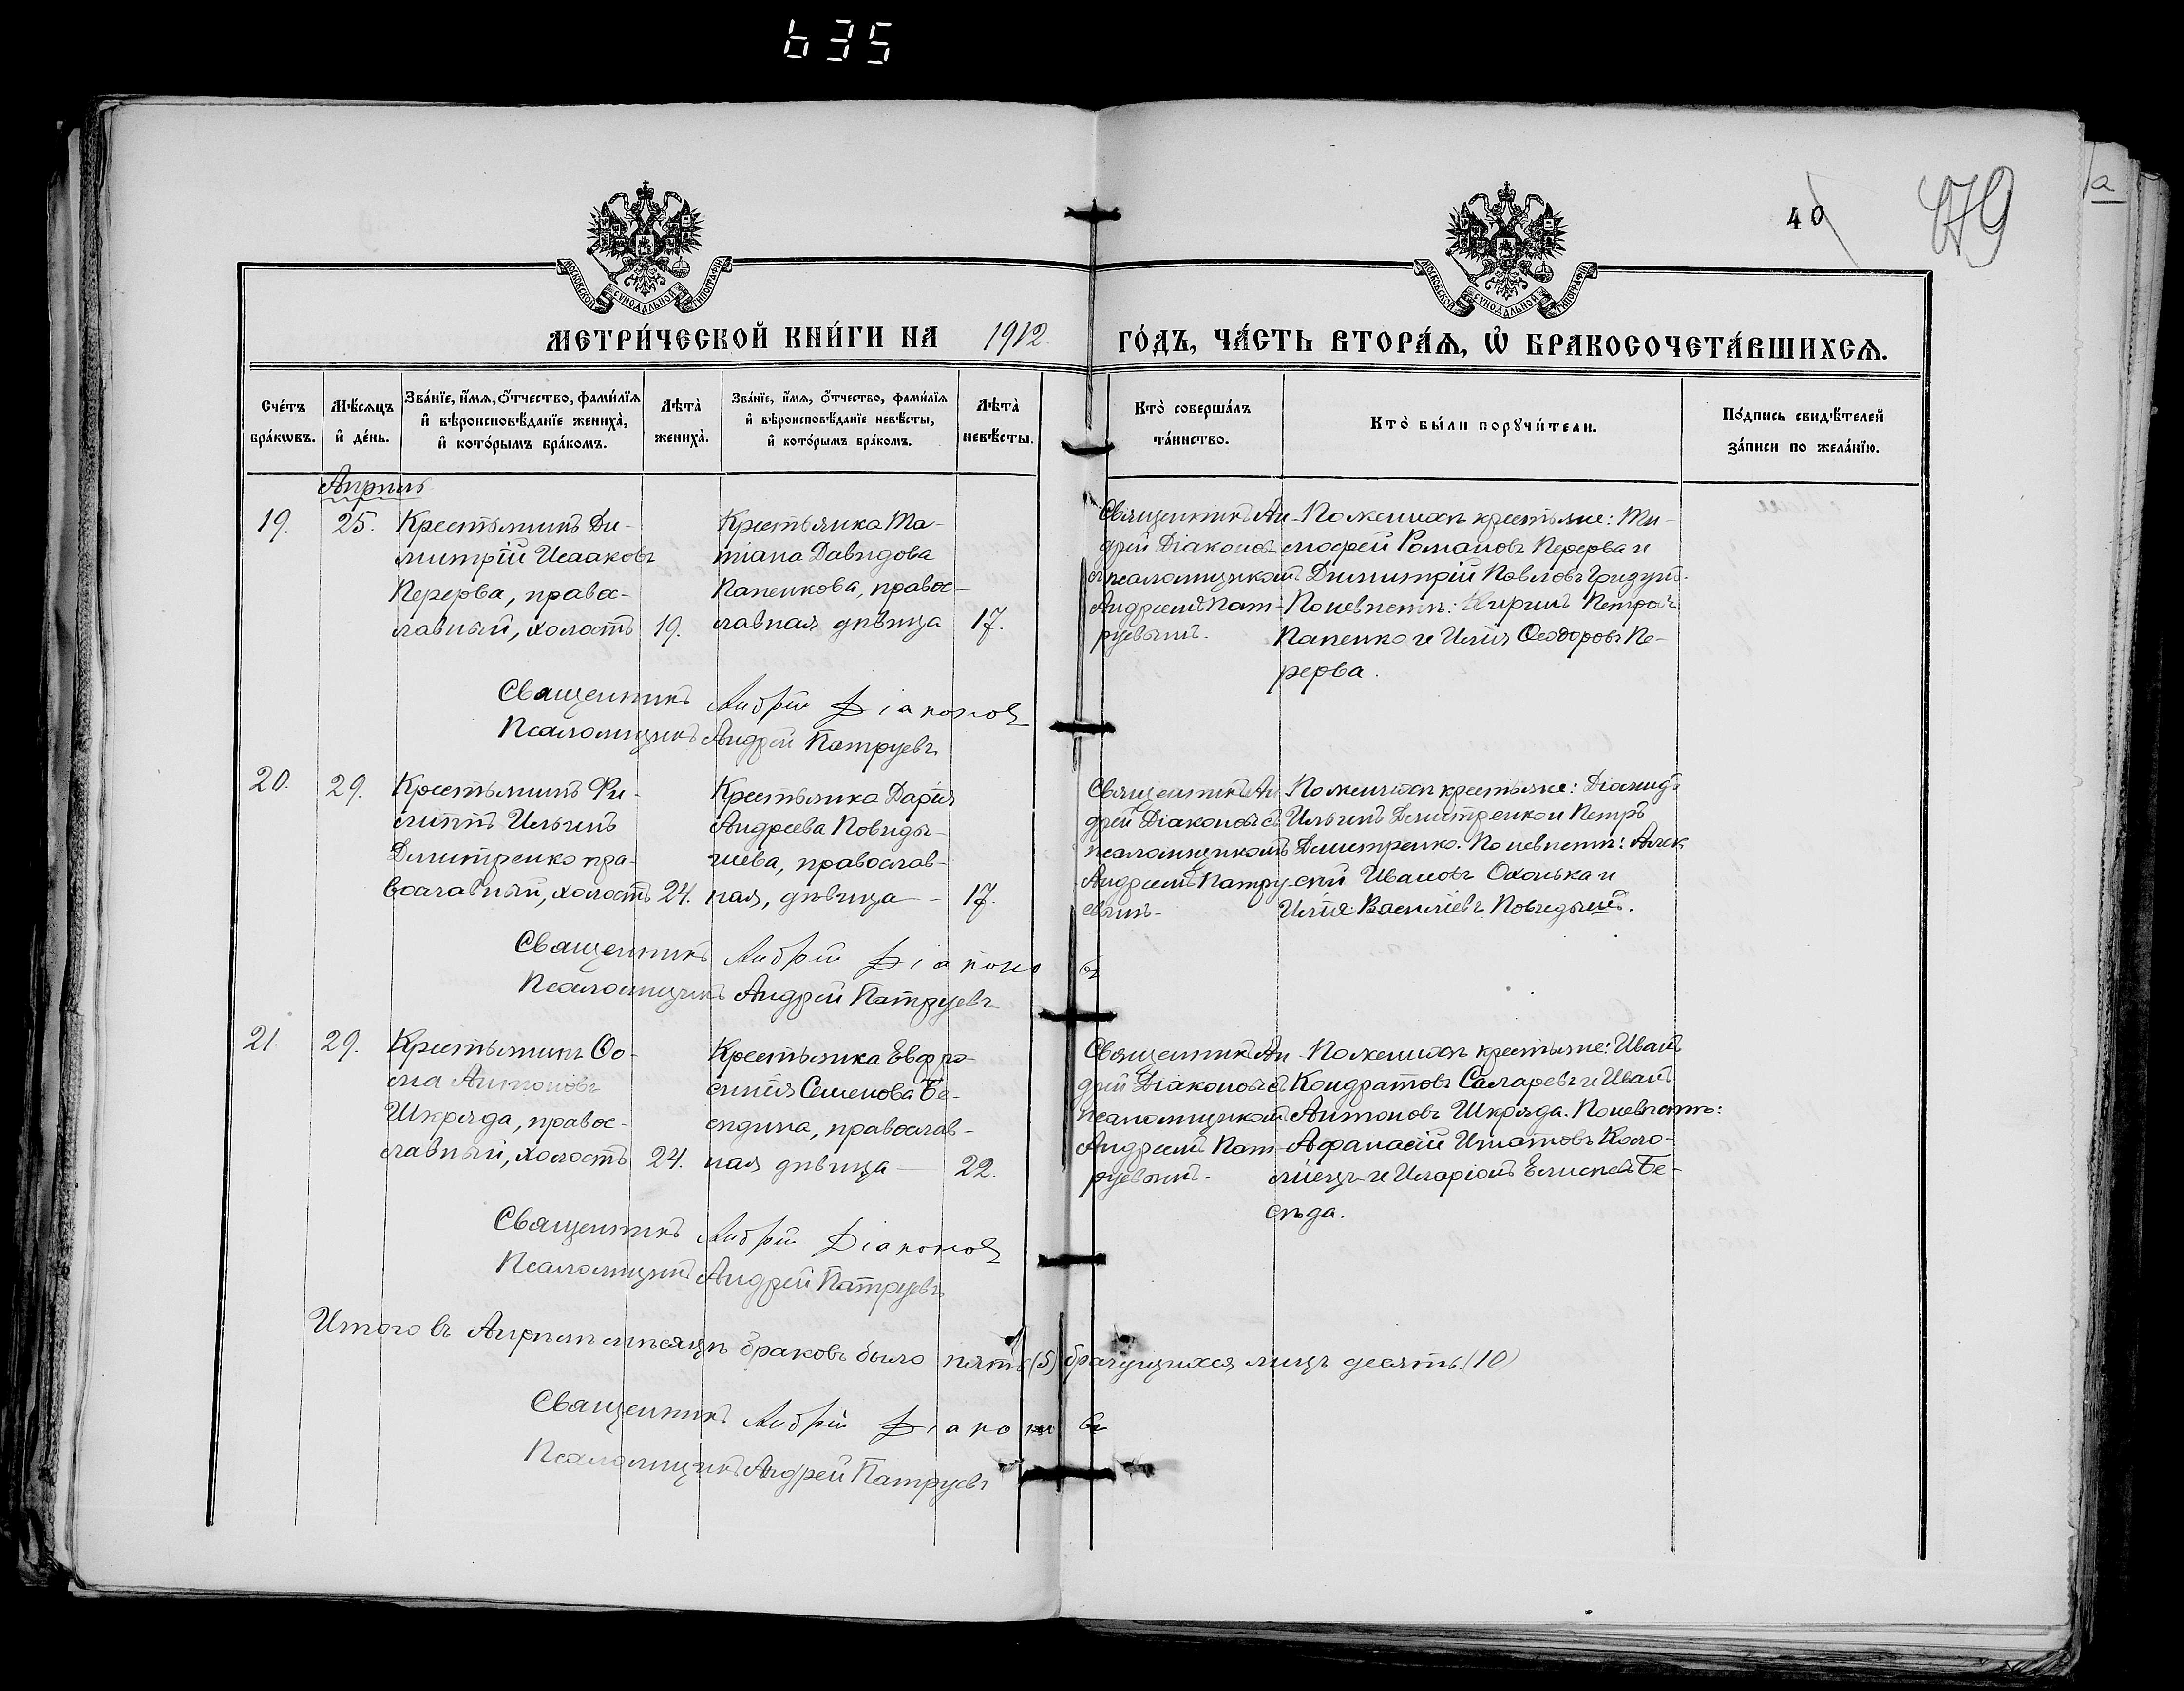 635
40
479
а
МОСКОВСКОЙ СѴНОДАЛЬНОЙ ТИПОГРАФІИ
МОСКОВСКОЙ СѴНОДАЛЬНОЙ ТИПОГРАФІИ
МЕТРИ́ЧЕСКОЙ КНИ́ГИ НА 1912. ГО́ДЪ, ЧА́СТЬ ВТОРА́Ѧ, Ѽ БРАКОСОЧЕТА́ВШИХСѦ.
Сче́тъ бра́кѡвъ.
Мѣ́сяцъ и҆ де́нь.
Зва́нїе, и҆́мя, ѻ҆́тчество, фами́лїя и҆ вѣроисповѣ́данїе жениха̀, и҆ кото́рымъ бра́комъ.
Лѣта̀ жениха̀.
Зва́нїе, и҆́мя, ѻ҆́тчество, фами́лїя и҆ вѣроисповѣ́данїе невѣ́сты, и҆ кото́рымъ бра́комъ.
Лѣта̀ невѣ́сты.
Кто̀ соверша́лъ та́инство.
Кто̀ бы́ли порꙋчи́тели.
По́дпись свидѣ́телей за́писи по жела́нїю.
Апрѣль
19.
25.
Крестьянинъ Ди-
митрій Исааковъ
Перерва, правос-
лавный, холостъ
19.
Крестьянка Та-
тіана Давидова
Папенкова, правос-
лавная дѣвица
17.
Священникъ Ан-
дрей Діаконовъ
съ псаломщикомъ
Андреемъ Пат-
руевымъ.
По женихѣ крестьяне: Ти-
мофей Романовъ Перерва и
Димитрій Павловъ Гризун.
По невѣстѣ: Кирилъ Петровъ
Папенко и Илія Ѳеодоровъ Пе-
рерва.
Священникъ Андрей Діаконовъ
Псаломщикъ Андрей Патруевъ
20.
29.
Крестьянинъ Фи-
липпъ Ильинъ
Дмитренко пра-
вославный, холостъ
24.
Крестьянка Дарія
Андреева Повиды-
шева, православ-
ная, дѣвица -
17.
Священникъ Ан
дрей Діаконовъ съ
псаломщикомъ
Андреемъ Патру-
евымъ-
По женихѣ крестьяне: Діомидъ
Ильинъ Дмитренко и Петръ
Дмитренко. По невѣстѣ: Алек
сѣй Ивановъ Охонька и
Илія Василіевъ Повидышъ.
Священникъ Андрей Діаконовъ
Псаломщикъ Андрей Патруевъ
21.
29.
Крестьянинъ Ѳо-
ма Антоновъ
Шкряда, правос-
лавный, холостъ
24.
Крестьянка Евфро-
синія Семенова Бе-
сѣдина, православ-
ная дѣвица —
22.
Священникъ Ан
дрей Діаконовъ съ
псаломщикомъ
Андреемъ Пат-
руевымъ-
По женихѣ крестьяне: Иванъ
Кондратовъ Самаревъ и Иванъ
Антоновъ Шкряда. По невѣстѣ:
Афанасій Игнатовъ Коло-
міецъ и Иларіонъ Елисѣевъ Бе-
сѣда.
Священникъ Андрей Діаконовъ
Псаломщикъ Андрей Патруевъ
Итого въ Апрѣлѣ мѣсяцѣ браковъ было пять (5) брачущихся лицъ десять (10)
Священникъ Андрей Діаконовъ
Псаломщикъ Андрей Патруевъ